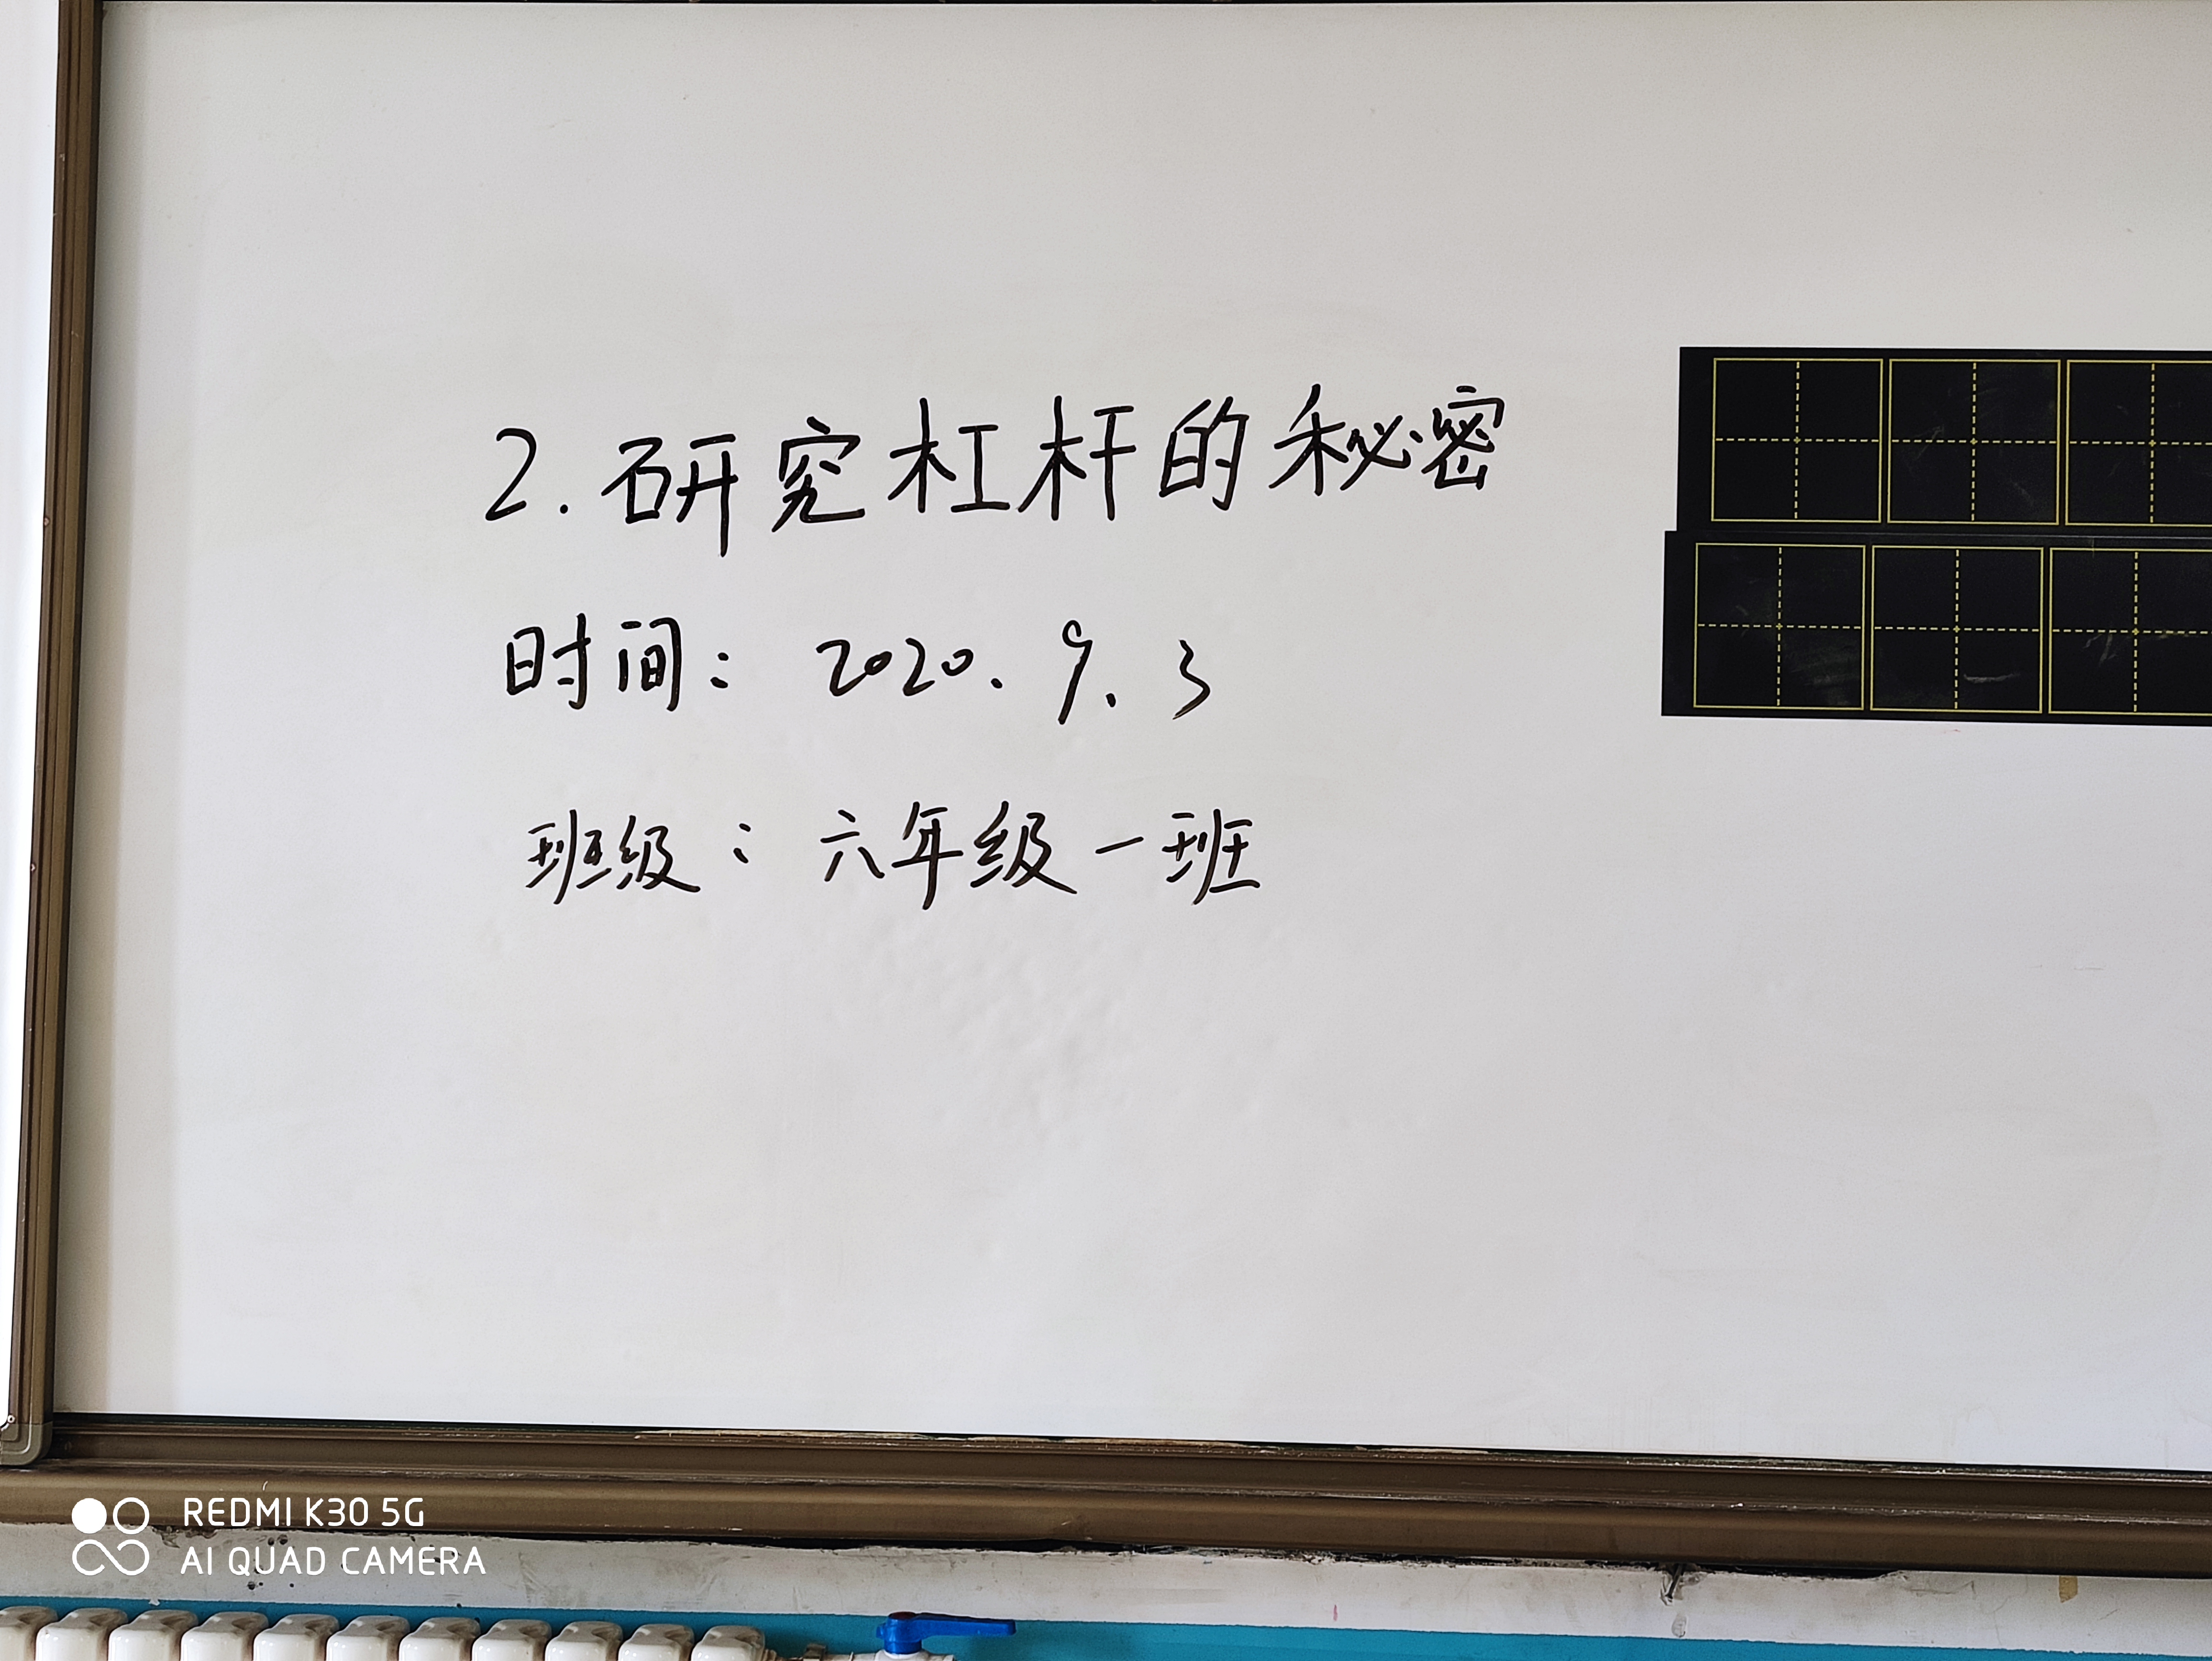 2.研究杠杆的秘密
时间：2020.9.3
班级：六年级一班
REDMI K30 5G
AI QUAD CAMERA